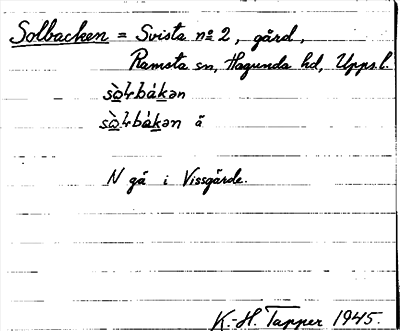 Solbacken = Svista nº 2, gård,
Ramsta sn, Hagunda hd, Upps.l.
sò̱ɫbákən
sò̱ɫbákən å
N gå i Vissgärde.
K.-H. Tapper 1945.